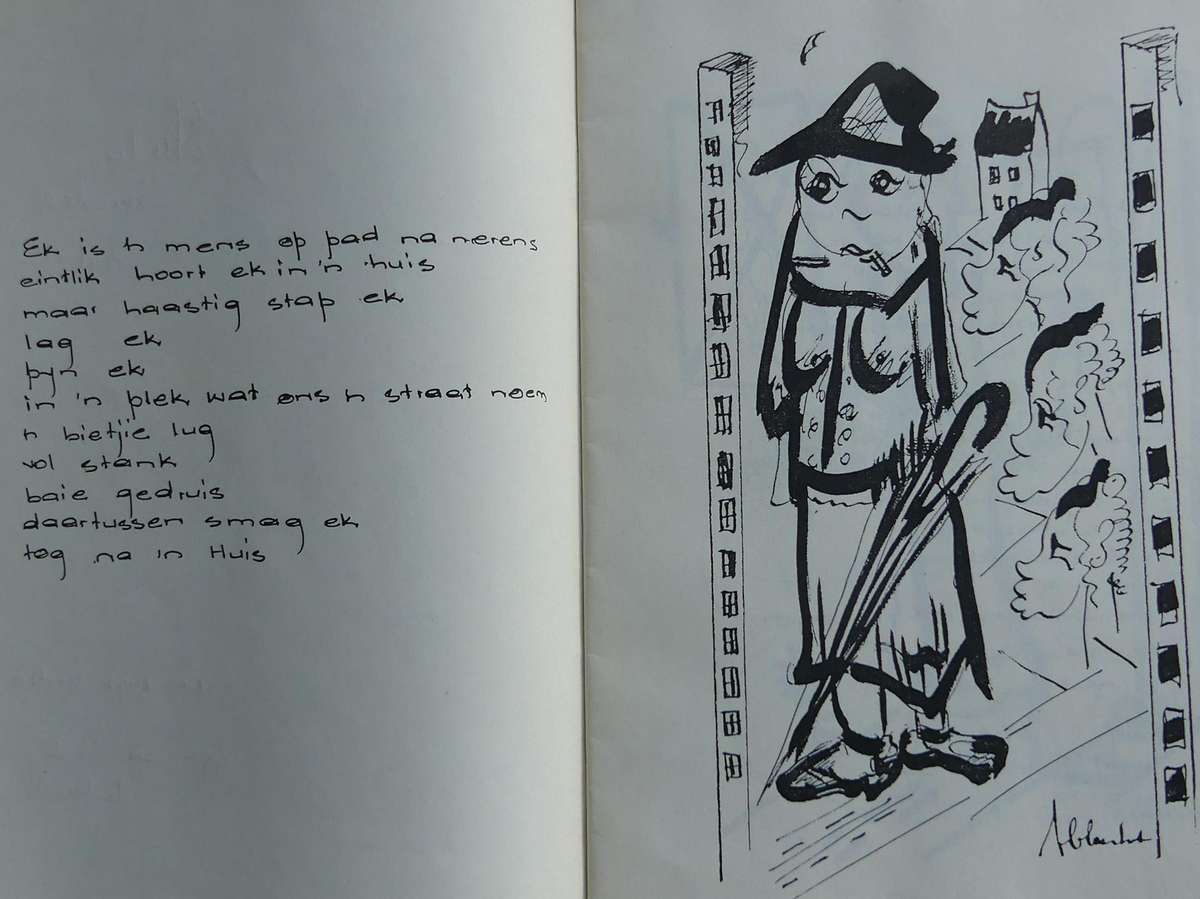 Ek is 'n mens op pad na nerens
eintlik hoort ek in 'n huis
maar haastig stap ek
lag ek
pyn ek
in 'n plek wat ons 'n straat noem
'n bietjie lug
vol stank
baie gedruis
daartussen smag ek
tog na 'n Huis